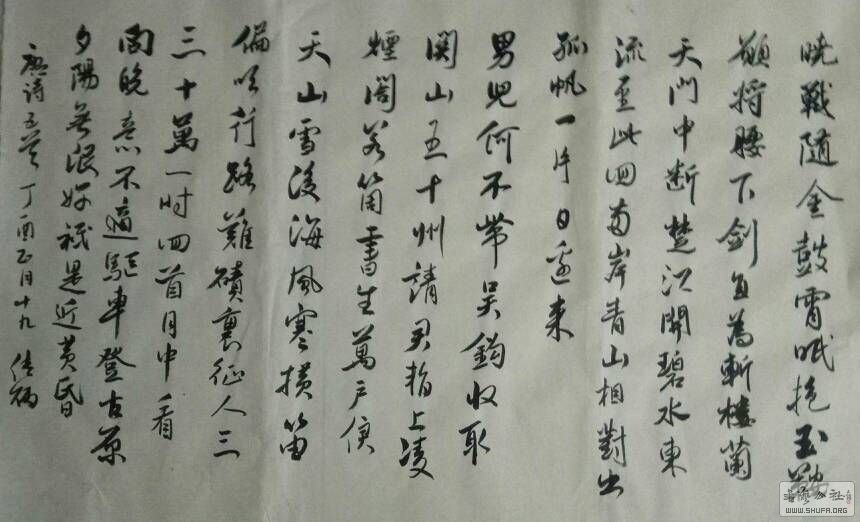 曉戰隨金鼓宵眠抱玉鞍
願將腰下劍直為斬樓蘭
天門中斷楚江開碧水東
流至此回兩岸青山相對出
孤帆一片日邊來
男兒何不帶吳鉤收取
関山五十州請君暫上凌
煙閣若箇書生萬户侯
天山雪後海風寒橫笛
偏吹行路難磧裏征人三
三十萬一時回首月中看
向晚意不適驅車登古原
夕陽無限好祇是近黃昏
唐詩五首 丁酉正月十九
WWW.SHUFA.ORG